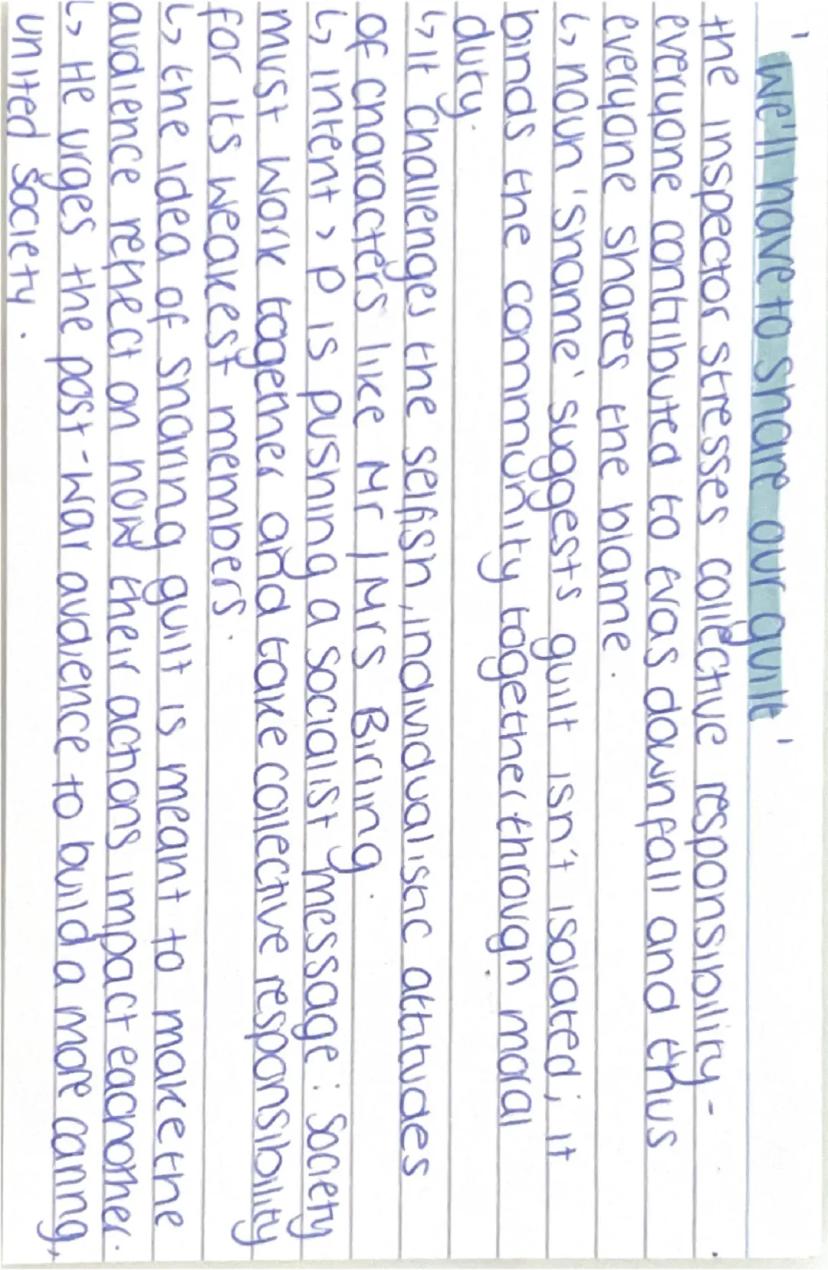 'we'll have to share our guilt'
the inspector stresses collective responsibility -
everyone contributed to Evas downfall and thus
everyone shares the blame.
↳ noun 'shame' suggests guilt isn't isolated; it
binds the community together through moral
duty.
↳ It challenges the selfish, individualistic attitudes
of characters like Mr / Mrs Birling.
↳ intent > P is pushing a socialist message: society
must work together and take collective responsibility
for its weakest members.
↳ the idea of sharing guilt is meant to make the
audience reflect on how their actions impact eachother.
↳ He urges the post-war audience to build a more caring,
united society.